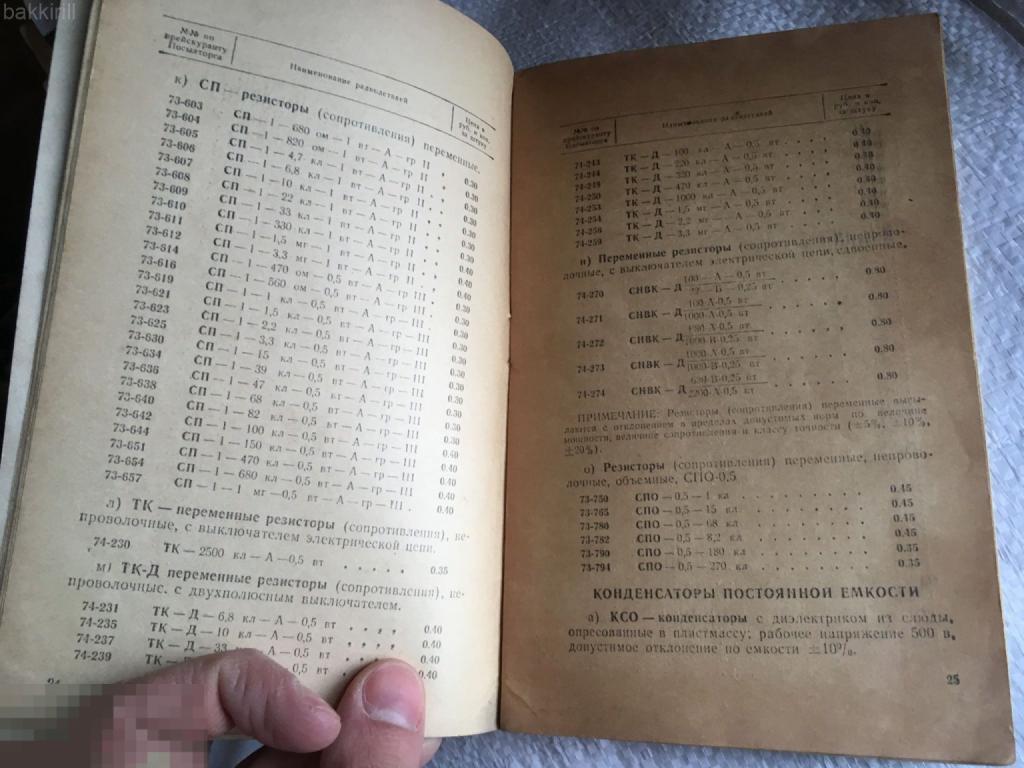 bakkirill
№№ по
прейскуранту
Посылторга
Наименование радиодеталей
Цена в
руб. и коп.
за штуку
к) СП — резисторы (сопротивления) переменные.
73-603 СП — I — 680 ом — I вт — А — гр II 0.30
73-604 СП — I — 820 ом — I вт — А — гр II 0.30
73-605 СП — I — 4,7 кл — I вт — А — гр II 0.30
73-606 СП — I — 6,8 кл — I вт — А — гр II
73-607 СП — I — 10 кл — I вт — А — гр II
73-608 СП — I — 22 кл — I вт — А — гр II
73-609 СП — I — 33 кл — I вт — А — гр II
73-610 СП — I — 330 кл — I вт — А — гр II
73-611 СП — I — 1,5 мг — I вт — А — гр II
73-612 СП — I — 3,3 мг — I вт — А — гр II
73-614 СП — I — 470 ом — 0,5 вт — А — гр III
73-616 СП — I — 560 ом — 0,5 вт — А — гр III
73-619 СП — I — 1 кл — 0,5 вт — А — гр III
73-621 СП — I — 1,5 кл — 0,5 вт — А — гр III
73-623 СП — I — 2,2 кл — 0,5 вт — А — гр III
73-625 СП — I — 3,3 кл — 0,5 вт — А — гр III
73-630 СП — I — 15 кл — 0,5 вт — А — гр III
73-634 СП — I — 39 кл — 0,5 вт — А — гр — III
73-636 СП — I — 47 кл — 0,5 вт — А — гр — III
73-638 СП — I — 68 кл — 0,5 вт — А — гр — III
73-640 СП — I — 82 кл — 0,5 вт — А — гр — III
73-642 СП — I — 100 кл — 0,5 вт — А — гр — III
73-644 СП — I — 150 кл — 0,5 вт — А — гр — III
73-651 СП — I — 470 кл — 0,5 вт — А — гр — III 0.40
73-654 СП — I — 680 кл — 0,5 вт — А — гр — III 0.40
73-657 СП — I — 1 мг — 0,5 вт — А — гр — III . 0.40
л) ТК — переменные резисторы (сопротивления), не-
проволочные, с выключателем электрической цепи.
74-230 ТК — 2500 кл — А — 0,5 вт . . . . . 0.35
м) ТК-Д переменные резисторы (сопротивления), не-
проволочные. с двухполюсным выключателем.
74-231 ТК — Д — 6,8 кл — А — 0,5 вт . . . . 0.40
74-235 ТК — Д — 10 кл — А — 0,5 вт . . . . 0.40
74-237 ТК — Д — 33 0,5 вт . . . . 0.40
74-239 ТК — 0,5 вт . . . . 0.40
№№ по
прейскуранту
Посылторга
Наименование радиодеталей
Цена в
руб. и коп.
за штуку
74-243 ТК — Д — 100 кл — А — 0,5 вт . . . . 0.40
74-244 ТК — Д — 220 кл — А — 0,5 вт . . . . 0.40
74-249 ТК — Д — 330 кл — А — 0,5 вт . . . . 0.40
74-250 ТК — Д — 470 кл — А — 0,5 вт . . . . 0.40
74-253 ТК — Д — 1000 кл — А — 0,5 вт . . . . 0.40
74-254 ТК — Д — 1,5 мг — А — 0,5 вт . . . . 0.40
74-258 ТК — Д — 2,2 мг — А — 0,5 вт . . . . 0.40
74-259 ТК — Д — 3,3 мг — А — 0,5 вт . . . . 0.40
н) Переменные резисторы (сопротивления), непрово-
лочные, с выключателем электрической цепи, сдвоенные.
100 — А — 0,5 вт
74-270 СНВК — Д — В — 0,25 вт 0.80
100-А-0,5 вт
74-271 СНВК — Д 1000-А-0,5 вт 0.80
А-0,5 вт
74-272 СНВК — Д 1000-В-0,25 вт 0.80
1000-А-0,5 вт
74-273 СНВК — Д 1000-В-0,25 вт 0.80
680-В-0,25 вт
74-274 СНВК — Д 2200-А-0,5 вт 0.80
ПРИМЕЧАНИЕ: Резисторы (сопротивления) переменные высы-
лаются с отклонением в пределах допустимых норм по величине
мощности, величине сопротивления и классу точности (±5%, ±10%,
±20%).
о) Резисторы (сопротивления) переменные, непрово-
лочные, объемные, СПО-0,5
73-750 СПО — 0,5 — 1 кл . . . . . . . 0.45
73-765 СПО — 0,5 — 15 кл . . . . . . . 0.45
73-780 СПО — 0,5 — 68 кл . . . . . . . 0.45
73-782 СПО — 0,5 — 8,2 кл . . . . . . . 0.45
73-790 СПО — 0,5 — 180 кл . . . . . . . 0.35
73-794 СПО — 0,5 — 270 кл . . . . . . . 0.35
КОНДЕНСАТОРЫ ПОСТОЯННОЙ ЕМКОСТИ
а) КСО — конденсаторы с диэлектриком из слюды,
опресованные в пластмассу; рабочее напряжение 500 в,
допустимое отклонение по емкости ±10%.
25